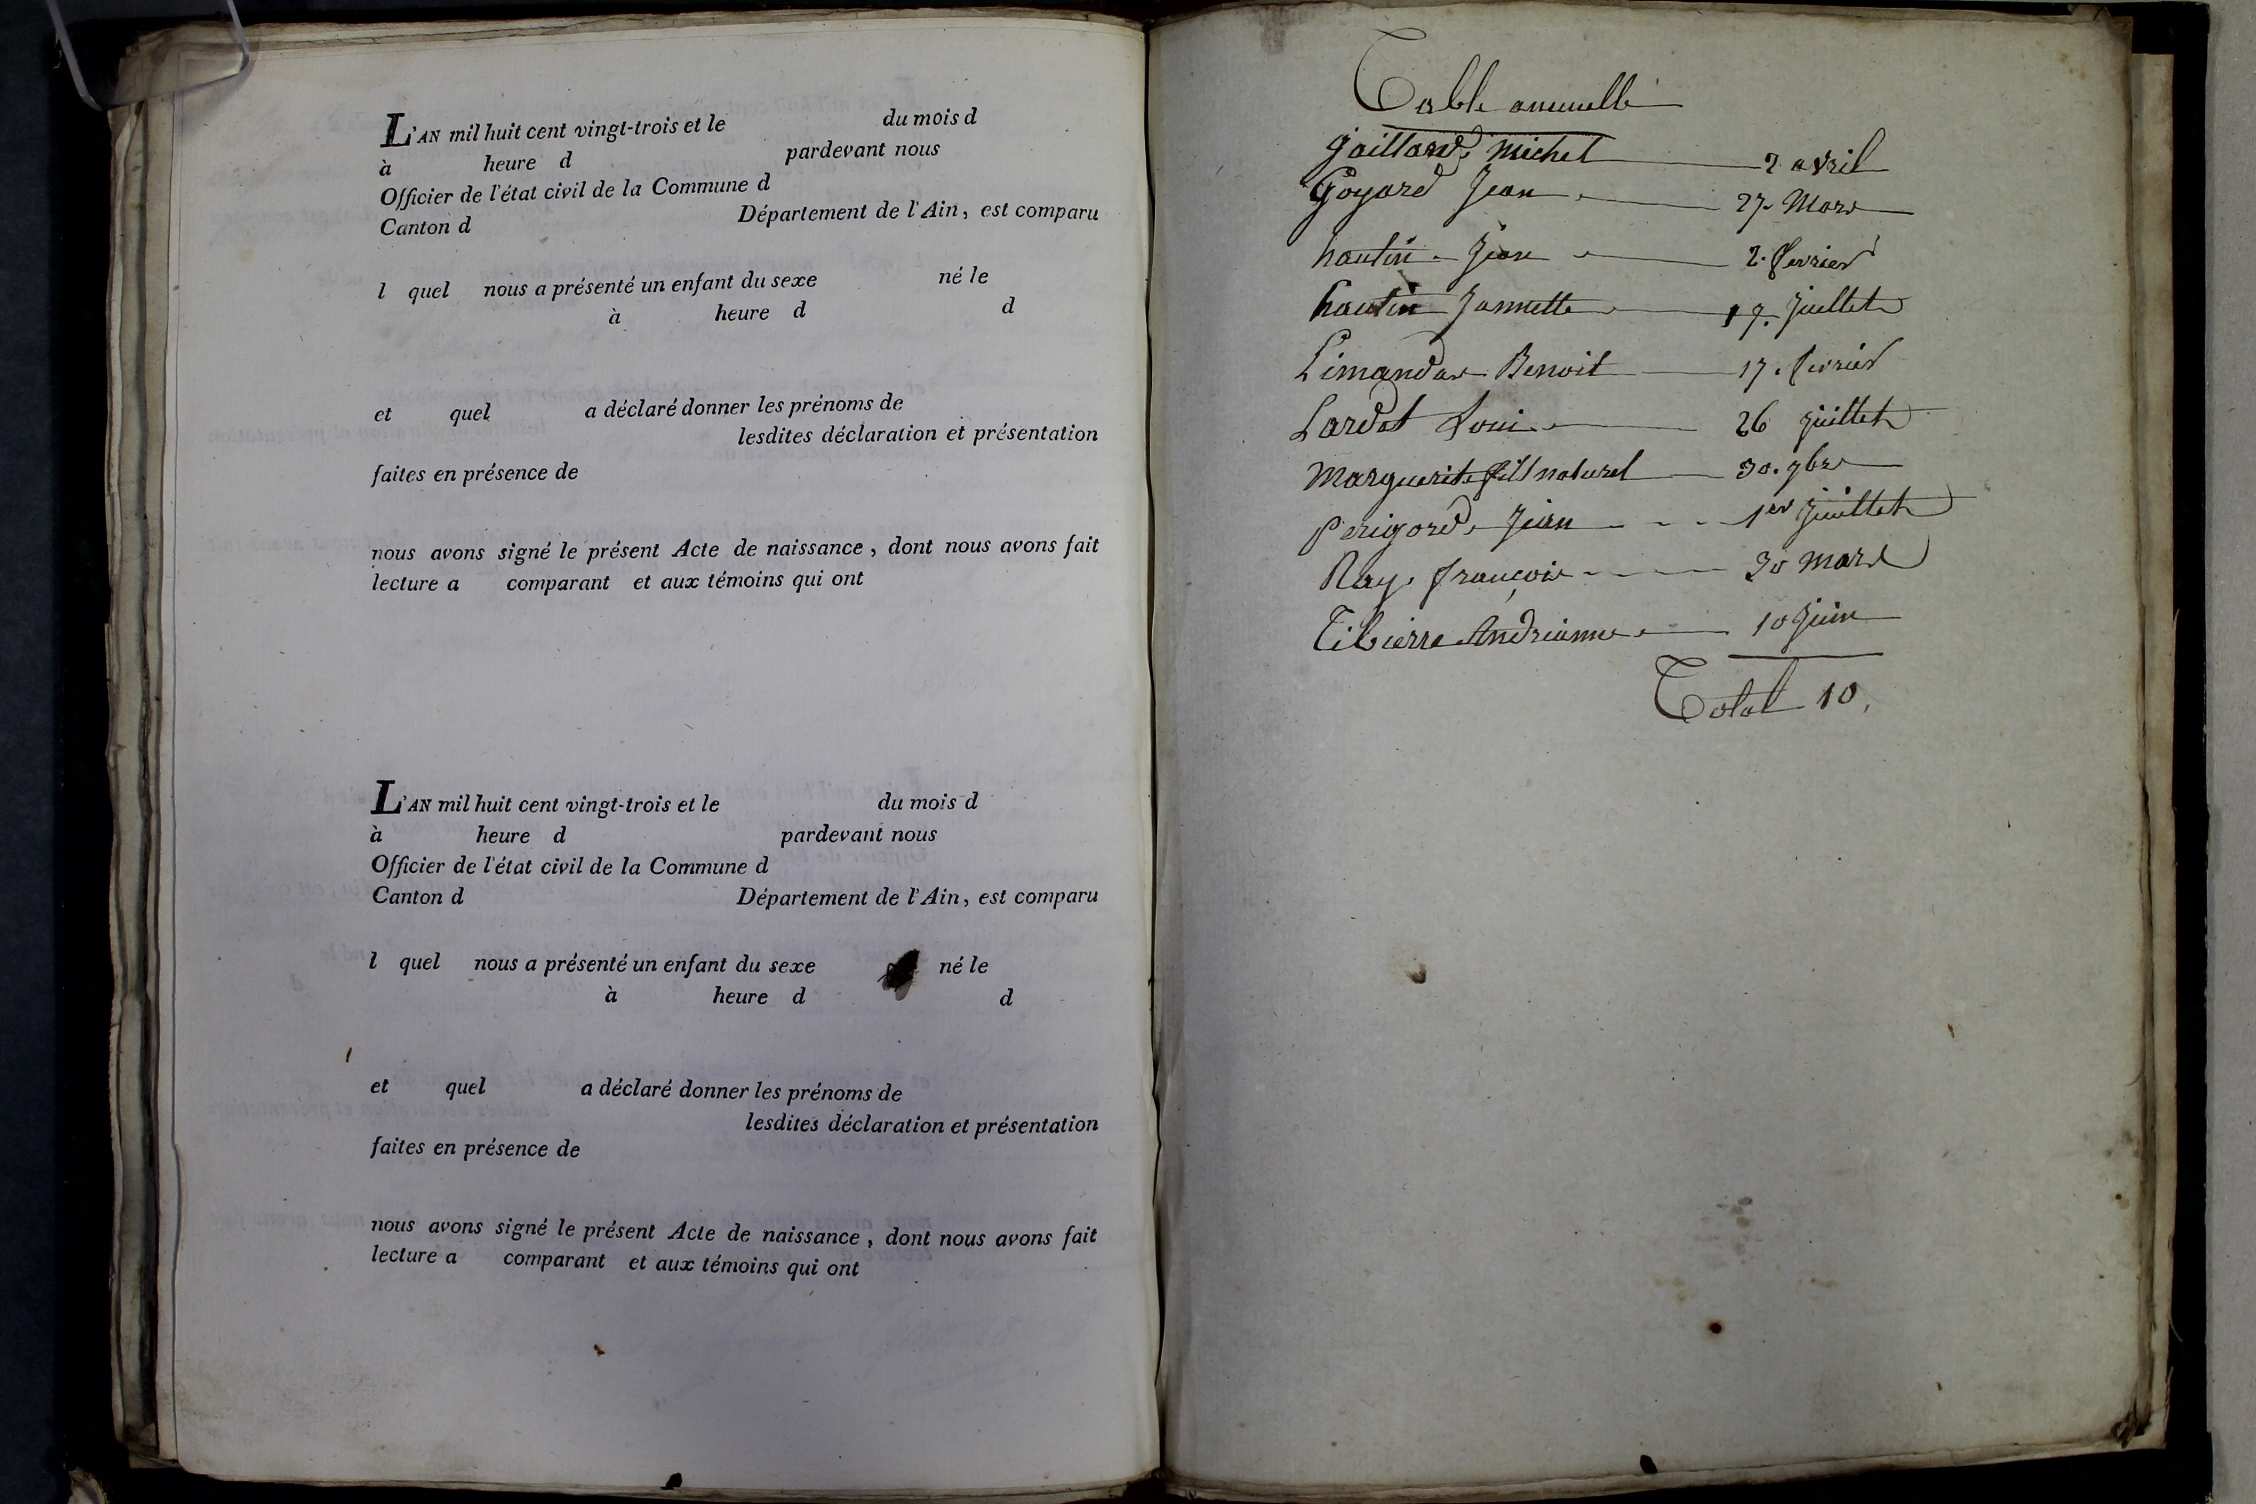 L'AN mil huit cent vingt-trois et le du mois d
à heure d pardevant nous
Officier de l'état civil de la Commune d
Canton d Département de l'Ain, est comparu
l quel nous a présenté un enfant du sexe né le
à heure d d
et quel a déclaré donner les prénoms de
lesdites déclaration et présentation
faites en présence de
nous avons signé le présent Acte de naissance, dont nous avons fait
lecture a comparant et aux témoins qui ont
L'AN mil huit cent vingt-trois et le du mois d
à heure d pardevant nous
Officier de l'état civil de la Commune d
Canton d Département de l'Ain, est comparu
l quel nous a présenté un enfant du sexe né le
à heure d d
et quel a déclaré donner les prénoms de
lesdites déclaration et présentation
faites en présence de
nous avons signé le présent Acte de naissance, dont nous avons fait
lecture a comparant et aux témoins qui ont
Table annuelle
gaillard michel 2 avril
Goyard Jean 27. Mars
hautin Jean 2. fevrier
hautin Jannette 17. Juillet
Limandas Benoit 17. fevrier
Lardet Loui 26 juillet
Marguerite fille naturel 30. 7bre
Perigord Jean 1er Juillet
Ray françois 30 mars
Tibierre Andrianne 10 Juin
Total 10,